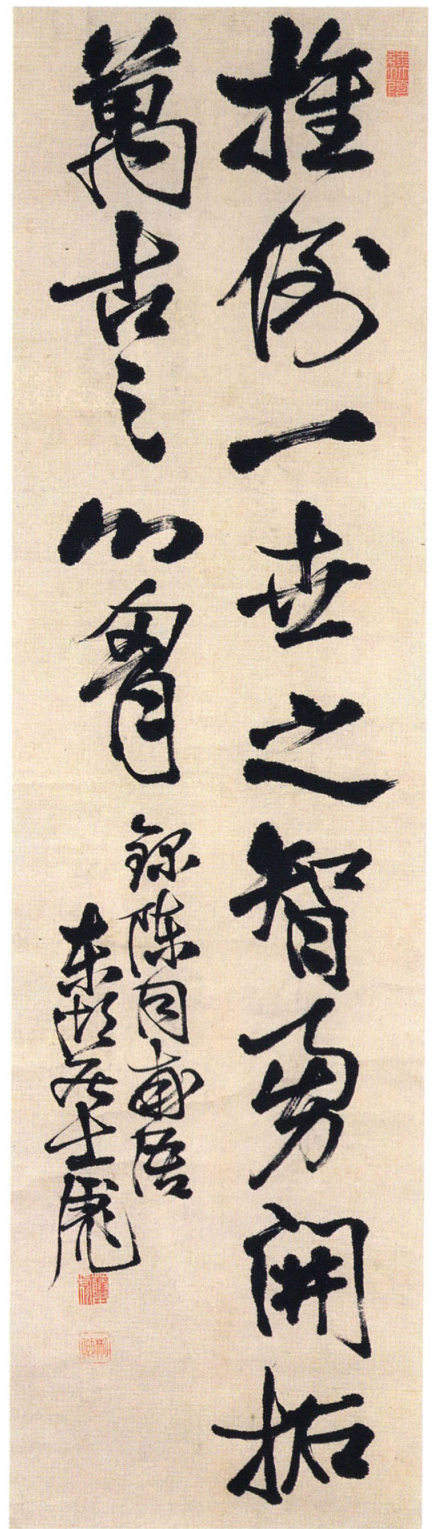 推倒一世之智勇開拓
萬古之心胷
録陳同甫語
東湖居士彪